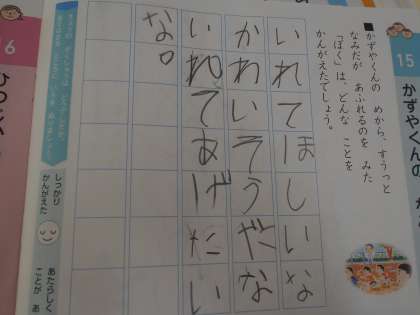 15
かずやくんの
■かずやくんの めから、すうっと
なみだが あふれるのを みた
「ぼく」は、どんな ことを
かんがえたでしょう。
いれてほしいな
かわいそうだな
いれてあげたい
な。
しっかり
かんがえた
あたらしく
ことが あ
16